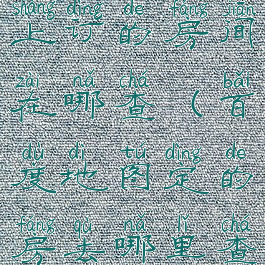 shàng dìng de fáng jiān
上订的房间
zài nǎ chá bǎi
在哪查（百
dù dì tú dìng de
度地图定的
fáng qù nǎ lǐ chá
房去哪里查